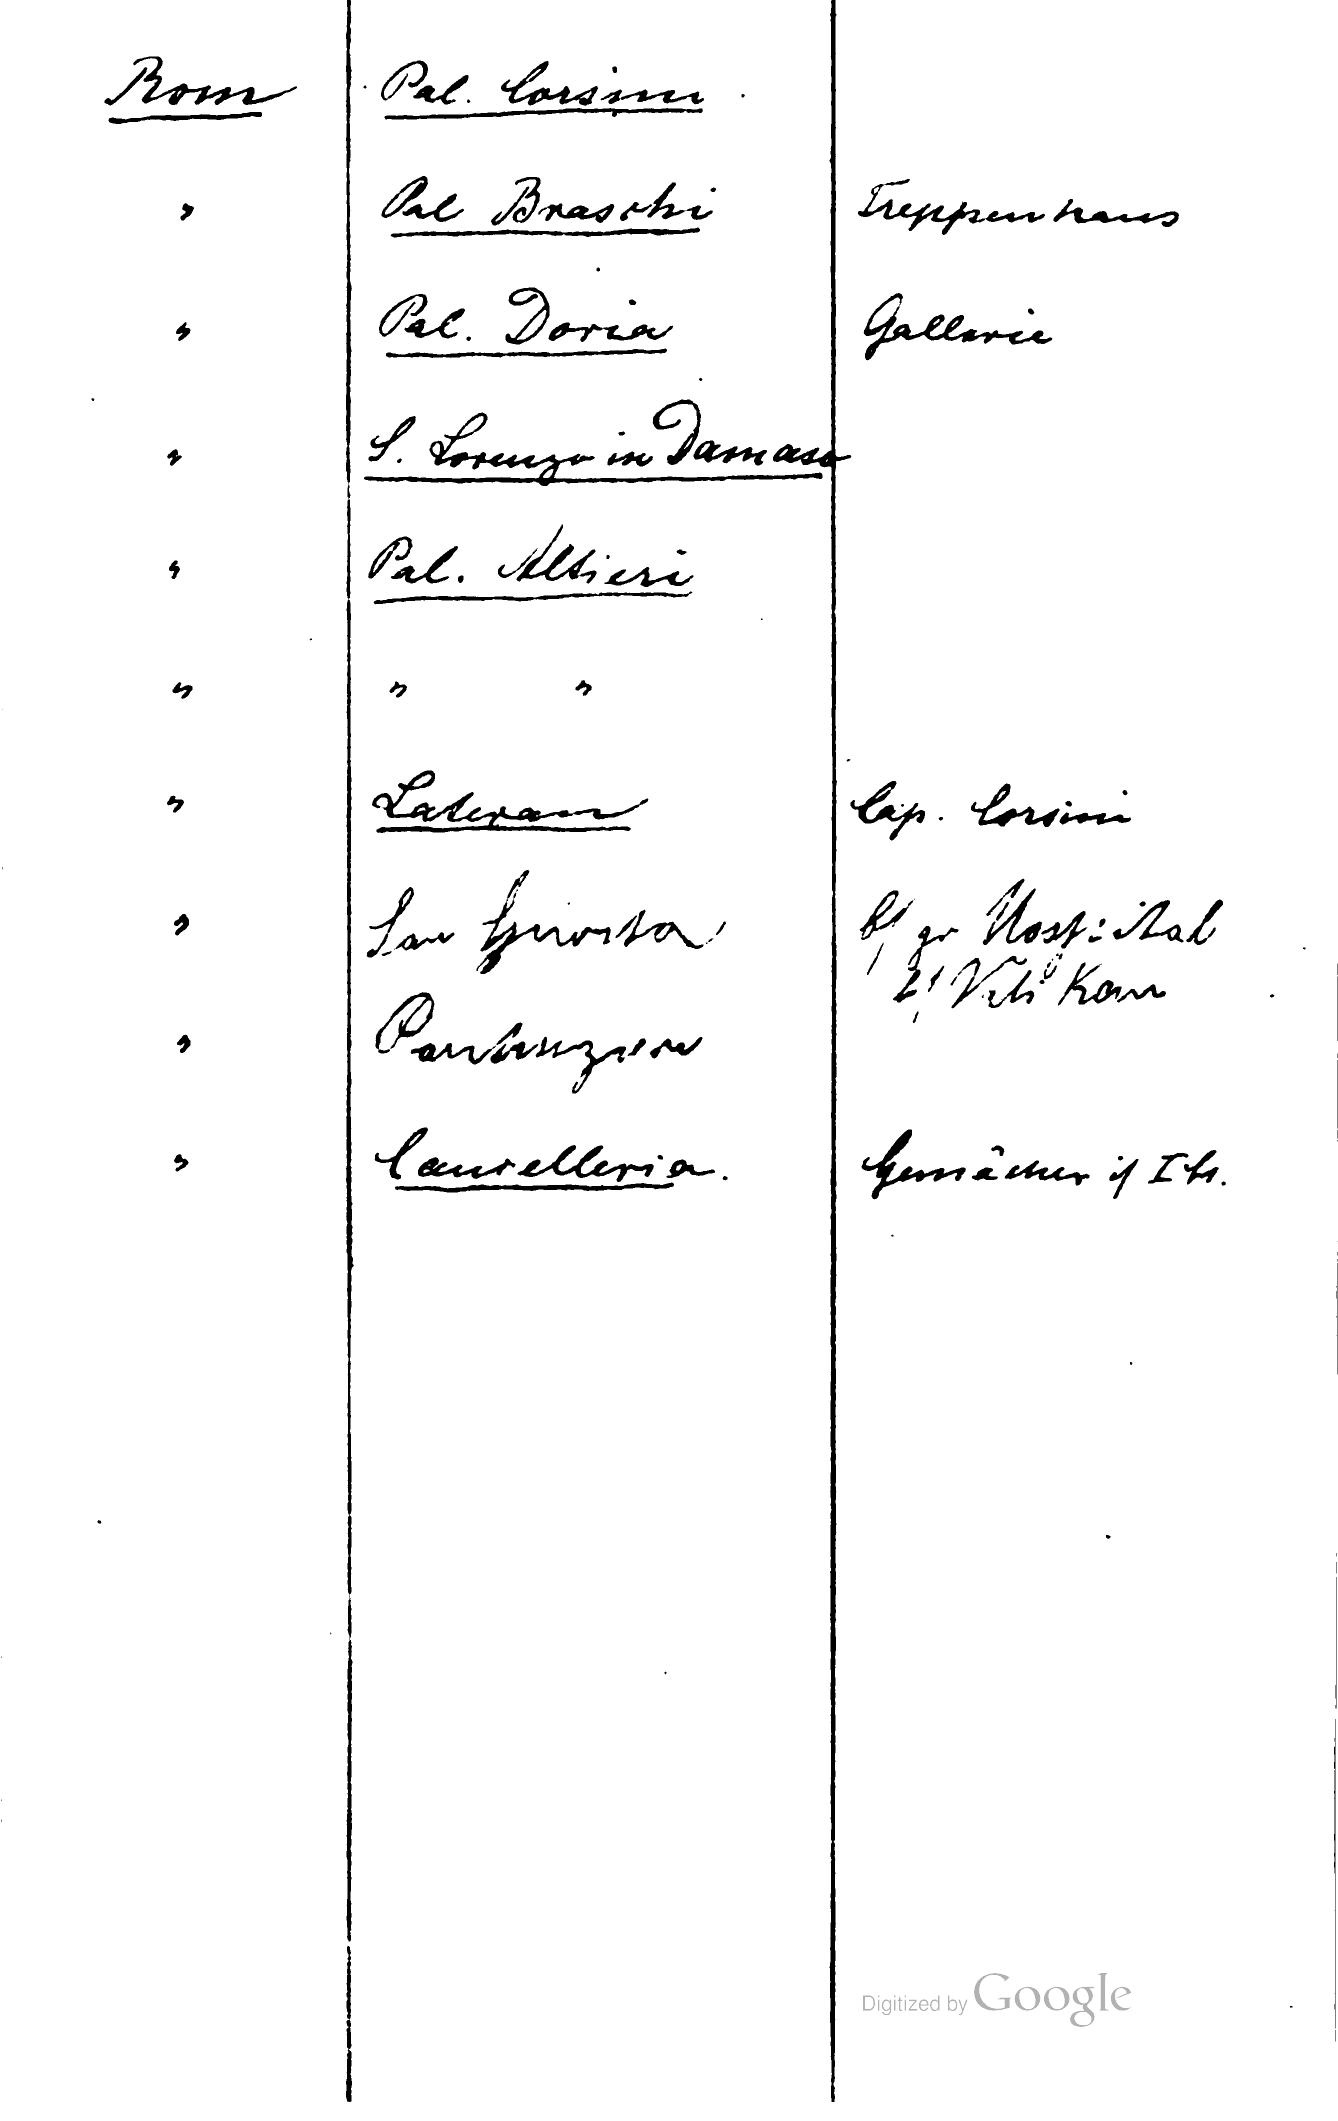 Rom Pal. Corsini
" Pal Braschi Treppenhaus
" Pal. Doria Gallerie
" S. Lorenzo in Damaso
" Pal. Altieri
" " "
" Lateran Cap. Corsini
" San gr Hospital
"
" Cancelleria. Gemächer
Digitized by Google